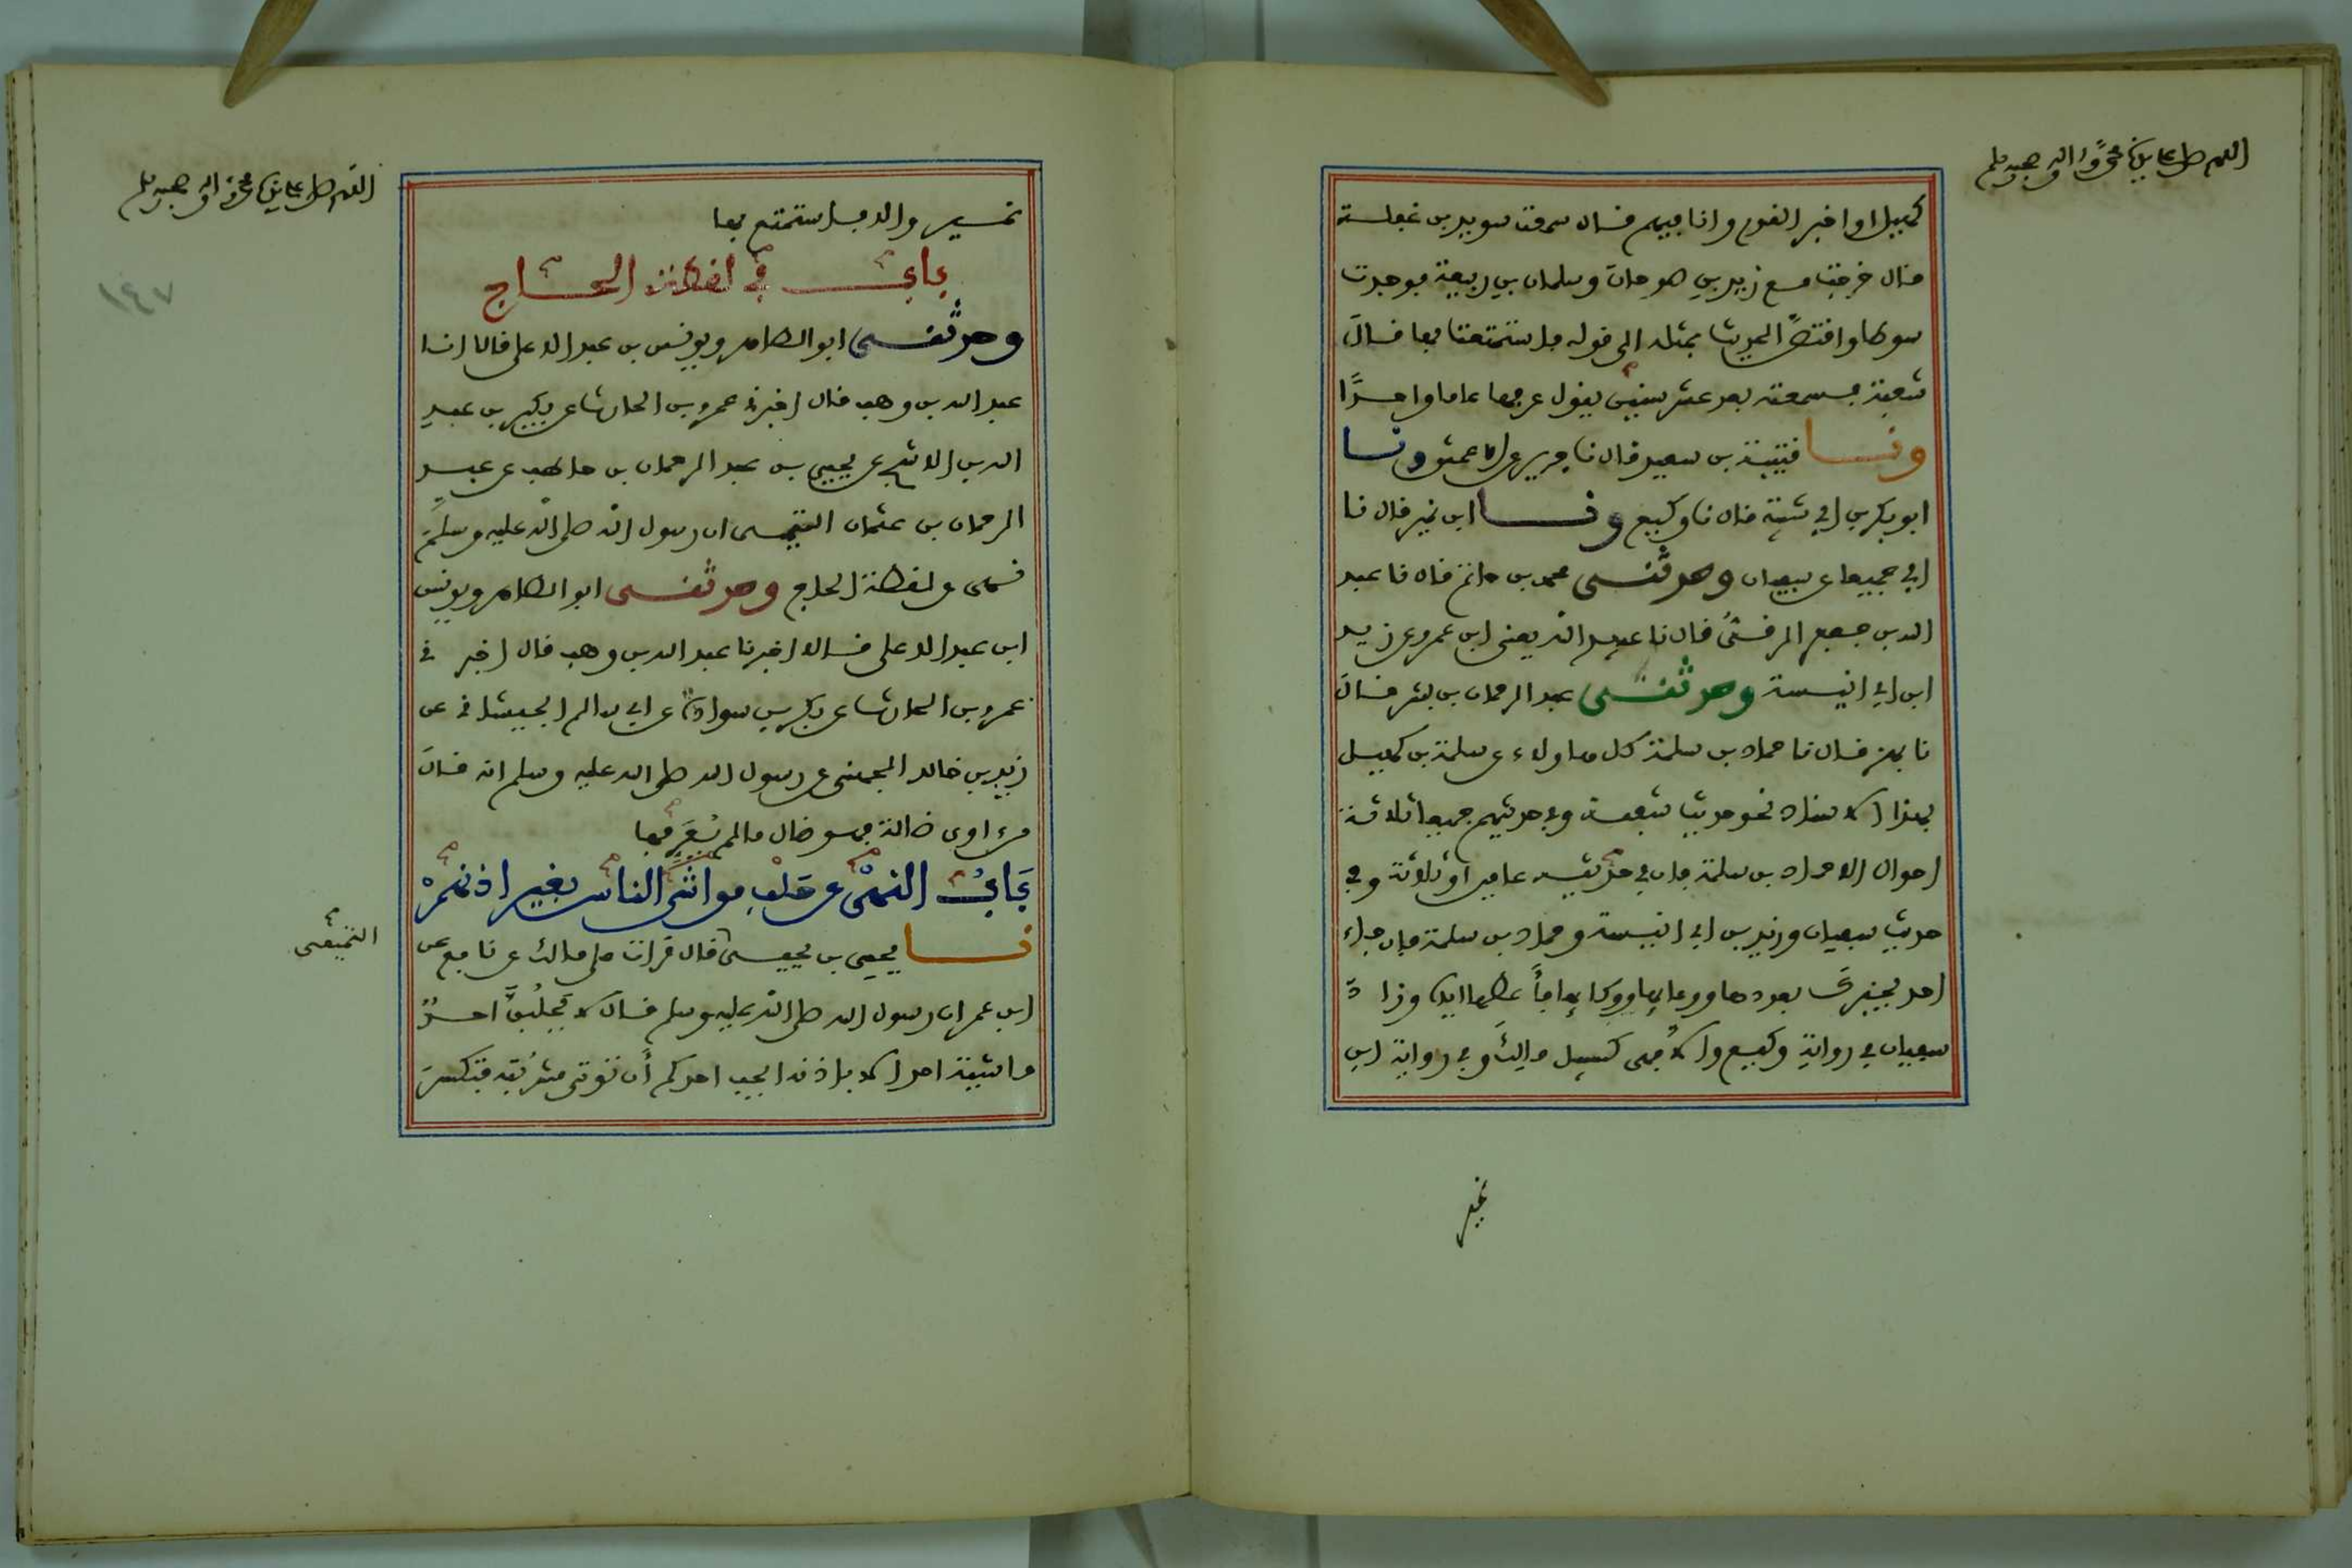 اللهم صل على سيدنا محمد وءاله وصحبه وسلم
كهيل او اخبر القوم وانا فيهم فقال سمعت سويد بن غفلة
قال خرجت مع زيد بن صوحان وسلمان بن ربيعة فوجدت
سوطا واقتصّ الحديث بمثله الى قوله فاستمتعت بها قال
شعبة فسمعته بعد عشر سنين يقول عرفها عاما واحدًا
ونا قتيبة بن سعيد قال نا جرير عن الاعمش ونا
ابو بكر بن ابي شيبة قال نا وكيع ونا ابن نمير قال نا
ابي جميعا عن سفيان وحدثني محمد بن حاتم قال نا عبد
الله بن جعفر الرقيُّ قال نا عبيد الله يعني ابن عمرو عن زيد
ابن ابي انيسة وحدثني عبد الرحمان بن بشر قال
نا بهز قال نا حماد بن سلمة كل هاولاء عن سلمة بن كهيل
بهذا الاسناد نحو حديث شعبة وفي حديثهم جميعا ثلاثة
احوال الا حماد بن سلمة فان في حديثه عامين او ثلاثة وفي
حديث سفيان وزيد بن ابي انيسة وحماد بن سلمة فان جاء
احد يخبركَ بعددها ووعايها ووكايها فأعطها اياه وزاد
سفيان في رواية وكيع والا فهي كسبيل مالك وفي رواية ابن
نمير
اللهم صل على سيدنا محمد وءاله وصحبه وسلم
نمير والا فاستمتع بها
باب في لقطة الحاج
وحدثني ابو الطاهر ويونس بن عبد الاعلى قالا انا
عبد الله بن وهب قال اخبرني عمرو بن الحارث عن بكير بن عبد
الله بن الاشج عن يحيى بن عبد الرحمان بن حاطب عن عبد
الرحمان بن عثمان التيمي ان رسول الله صلى الله عليه وسلم
نهى عن لقطة الحاج وحدثني ابو الطاهر ويونس
ابن عبد الاعلى قالا اخبرنا عبد الله بن وهب قال اخبرني
عمرو بن الحارث عن بكر بن سوادة عن ابي سالم الجيشاني عن
زيد بن خالد الجهني عن رسول الله صلى الله عليه وسلم انه قال
من ءاوى ضالة فهو ضال ما لم يُعَرِّفها
بَابُ النهي عن حَلْبِ مواشي الناس بغير اذنهمْ
نا يحيى بن يحيى قال قرات على مالك عن نافع عن
التميمى
ابن عمر ان رسول الله صلى الله عليه وسلم قال لا يَحلُبَنَّ احدٌ
ماشية احد الا باذنه ايحب احدكم أن توتى مشرُبته فتكسرَ